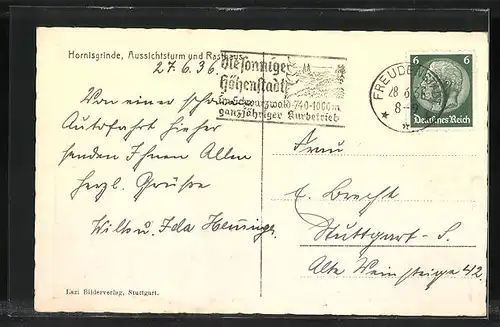 Hornisgrinde, Aussichtsturm und Rasthaus
27.6.36.
Von einer schönen
Autofahrt hieher
senden Ihnen Allen
herzl. Grüße
Wilh u. Ida
Die sonnige
Höhenstadt
im Schwarzwald 740-1000m
ganzjähriger Kurbetrieb
FREUDENSTADT
28.6.36
8-9
6 6
Deutsches Reich
Frau
E. Brecht
Stuttgart-S.
Alte Weinsteige 42.
Lazi Bilderverlag, Stuttgart.